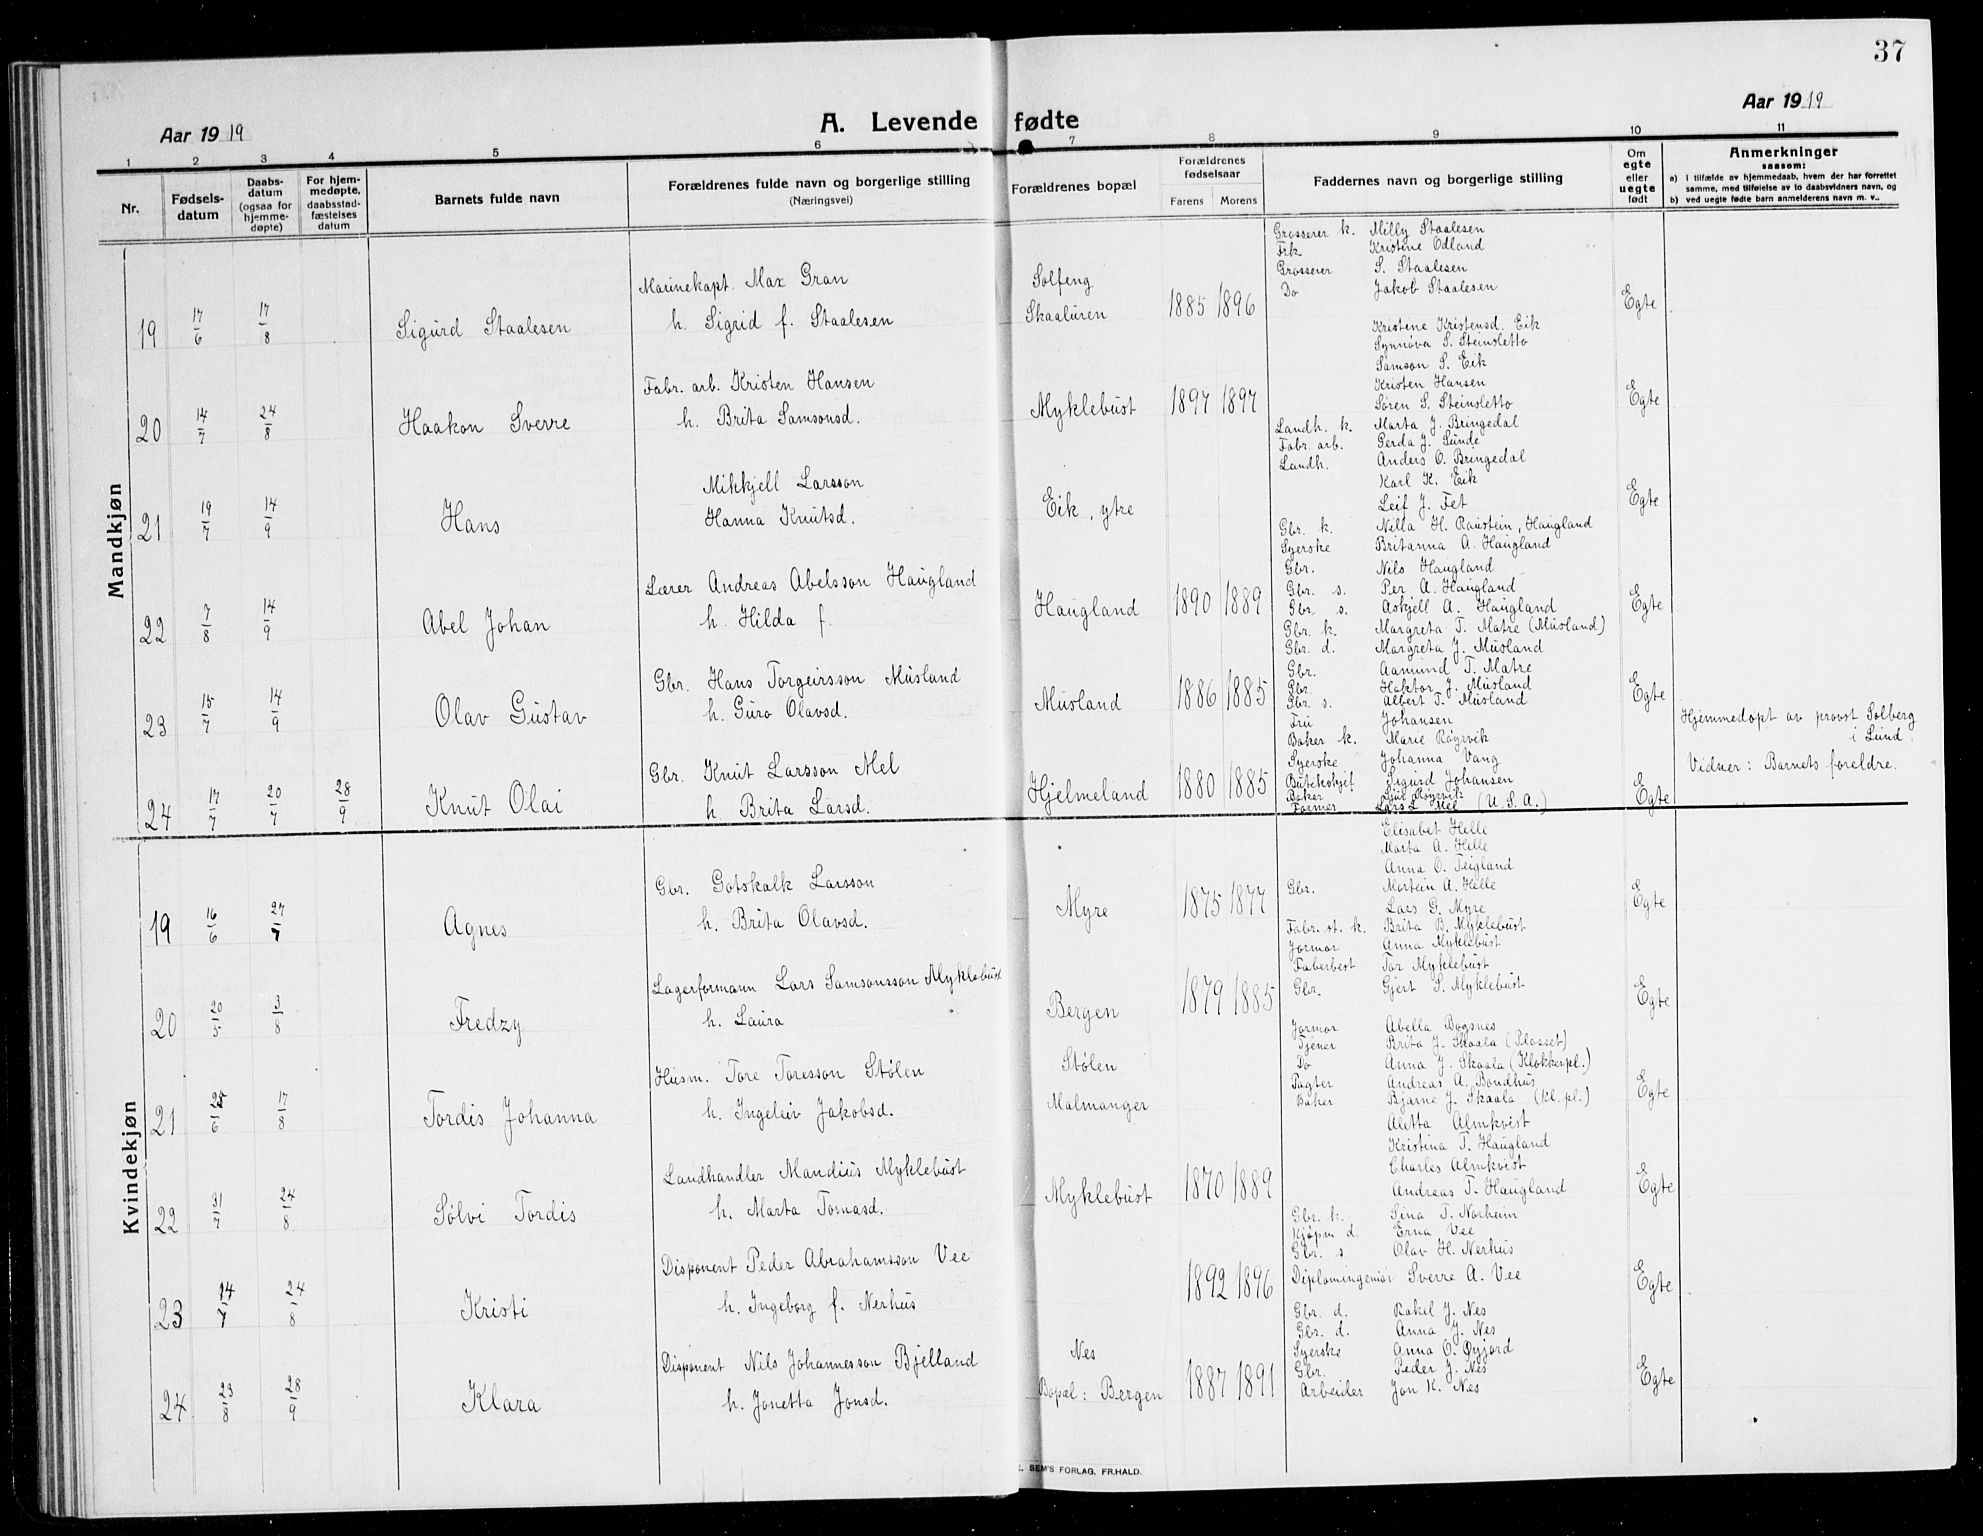 37
Aar 1919
A. Levende fødte
Aar 1919
1 2 3 4 5 6 7 8 9 10 11
Nr.
Fødsels-
datum
Daabs-
datum
(ogsaa for
hjemme-
døpte)
For hjem-
medøpte,
daabsstad-
fæstelses
datum
Barnets fulde navn
Forældrenes fulde navn og borgerlige stilling
(Næringsvei)
Forældrenes bopæl
Forældrenes
fødselsaar
Farens Morens
Faddernes navn og borgerlige stilling
Om
egte
eller
uegte
født
Anmerkninger
saasom:
a) i tilfælde av hjemmedaab, hvem der har forrettet
samme, med tilføielse av to daabsvidners navn, og
b) ved uegte fødte barn anmelderens navn m. v..
Mandkjøn
19 17/6 17/8 Sigurd Staalesen
Marinekapt. Max Gran
h. Sigrid f. Staalesen
Solfeng
Skaaluren
1885 1896
Grosserer k. Milly Staalesen
Frk. Kristine Odland
Grosserer S. Staalesen
Do Jakob Staalesen
Egte
20 14/7 24/8 Haakon Sverre
Fabr. arb. Kristen Hansen
h. Brita Samsonsd.
Myklebust
1897 1897
Kristene Kristensd. Eik
Synnøva S. Steinsletto
Samson S. Eik
Kristen Hansen
Søren S. Steinsletto
Egte
21 19/7 14/9 Hans
Mikkjell Larsson
Hanna Knutsd.
Eik, ytre
Landh. k. Marta J. Bringedal
Fabr. arb. Gerda J. Sunde
Landh. Anders O. Bringedal
Karl K. Eik
Leif J. Fet
Egte
22 7/8 14/9 Abel Johan
Lærer Andreas Abelsson Haugland
h. Hilda f.
Haugland
1890 1889
Gbr. k. Nilla H. Raustein, Haugland
Syerske Britanna A. Haugland
Gbr. Nils Haugland
Gbr. s. Per A. Haugland
Gbr. s. Askjell A. Haugland
Egte
23 15/7 14/9 Olav Gustav
Gbr. Hans Torgeirsson Musland
h. Guro Olavsd.
Musland
1886 1885
Gbr. k. Margreta T. Matre (Musland)
Gbr. d. Margreta J. Musland
Gbr. Aamund T. Matre
Gbr. Haktor J. Musland
Gbr. s. Albert T. Musland
Egte
24 17/7 20/7 28/9 Knut Olai
Gbr. Knut Larsson Mel
h. Brita Larsd.
Hjelmeland
1880 1885
Fru Johansen
Baker k. Marie Røyrvik
Syerske Johanna Vang
Butikskjef Sigurd Johansen
Baker Røyrvik
Farmer Lars L. Mel (U. S. A.)
Egte
Hjemmedøpt av provst Solberg
i Lund.
Vidner: Barnets foreldre.
Kvindekjøn
19 16/6 27/7 Agnes
Gbr. Gotskalk Larsson
h. Brita Olavsd.
Myre
1875 1877
Elisabet Helle
Marta A. Helle
Anna O. Teigland
Gbr. Mortein A. Helle
Lars G. Myre
Egte
20 20/5 3/8 Fredzy
Lagerformann Lars Samsonsson Myklebust
h. Laura
Bergen
1879 1885
Fabr. st. k. Brita B. Myklebust
Jormor Anna Myklebust
Faberbest Tor Myklebust
Gbr. Gjert S. Myklebust
Egte
21 24/6 17/8 Tordis Johanna
Husm. Tore Toresson Stølen
h. Ingeleiv Jakobsd.
Stølen
Malmanger
Jormor Abella Bogsnes
Tjener Brita J. Skaala (Plasset)
Do Anna J. Skaala (Klokkerpl.)
Pagter Andreas A. Bondhus
Baker Bjarne J. Skaala (Kl. pl.)
Egte
22 31/7 24/8 Sølvi Tordis
Landhandler Mandius Myklebust
h. Marta Tomasd.
Myklebust
1870 1889
Aletta Almkvist
Kristina T. Haugland
Charles Almkvist
Andreas T. Haugland
Egte
23 24/7 24/8 Kristi
Disponent Peder Abrahamsson Vee
h. Ingeborg f. Nerhus
1892 1896
Gbr. k. Sina T. Norheim
Kjøpm d. Erna Vee
Gbr. s. Olav H. Nerhus
Diplomingeniør Sverre A. Vee
Egte
24 23/8 28/9 Klara
Disponent Nils Johannesson Bjelland
h. Jonetta Jonsd.
Nes
Bopæl: Bergen
1887 1891
Gbr. d. Rakel J. Nes
Gbr. d. Anna J. Nes
Syerske Anna O. Øyjord
Gbr. Peder J. Nes
Arbeider Jon K. Nes
Egte
E. SEM'S FORLAG, FR.HALD.